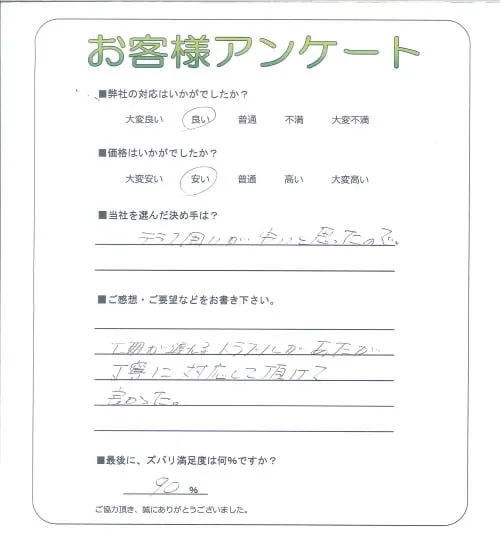 お客様アンケート
■弊社の対応はいかがでしたか？
大変良い 良い 普通 不満 大変不満
■価格はいかがでしたか？
大変安い 安い 普通 高い 大変高い
■当社を選んだ決め手は？
テラス囲いが安いと思ったので。
■ご感想・ご要望などをお書き下さい。
工期が遅れるトラブルがあったが
丁寧に対応して頂けて
良かった。
■最後に、ズバリ満足度は何%ですか？
90 %
ご協力頂き、誠にありがとうございました。